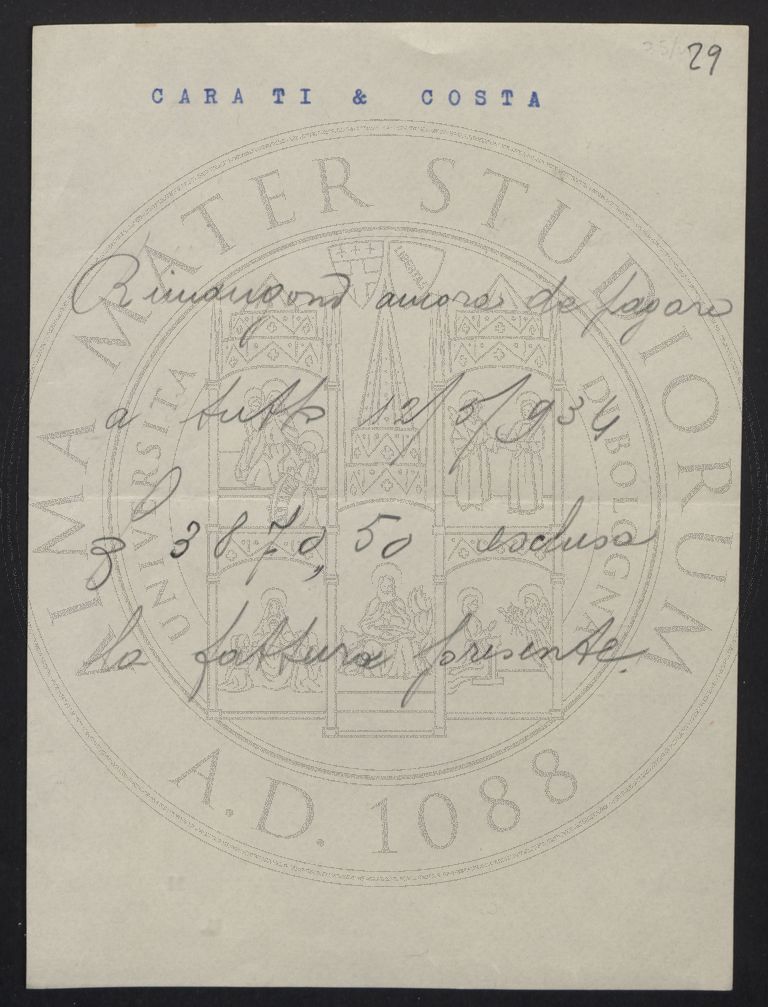 29
CARATI & COSTA
Rimangono ancora da pagare
a tutto 12/5/934
£ 3870,50 esclusa
la fattura presente.
ALMA MATER STUDIORUM
A.D. 1088
UNIVERSITA DI BOLOGNA
LIBERTAS